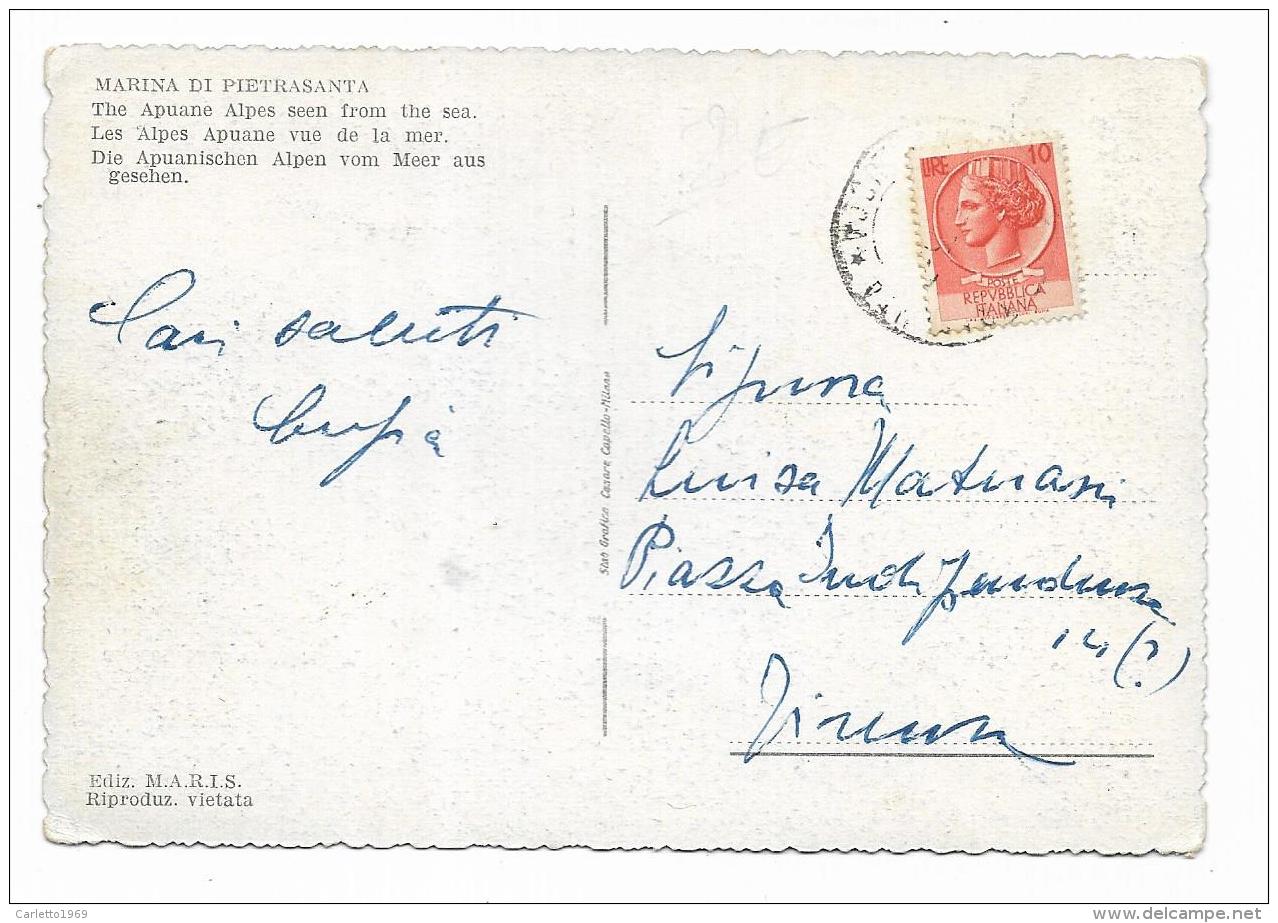 MARINA DI PIETRASANTA
The Apuane Alpes seen from the sea.
Les Alpes Apuane vue de la mer.
Die Apuanischen Alpen vom Meer aus
gesehen.
Cari saluti
Ediz. M.A.R.I.S.
Riproduz. vietata
Stab Grafico Cesare Capello-Milano
LIRE 10
POSTE
REPVBBLICA
ITALIANA
Luisa
Piazza Indipendenza
14 (?)
Firenze
Carletto1969
delcampe.net